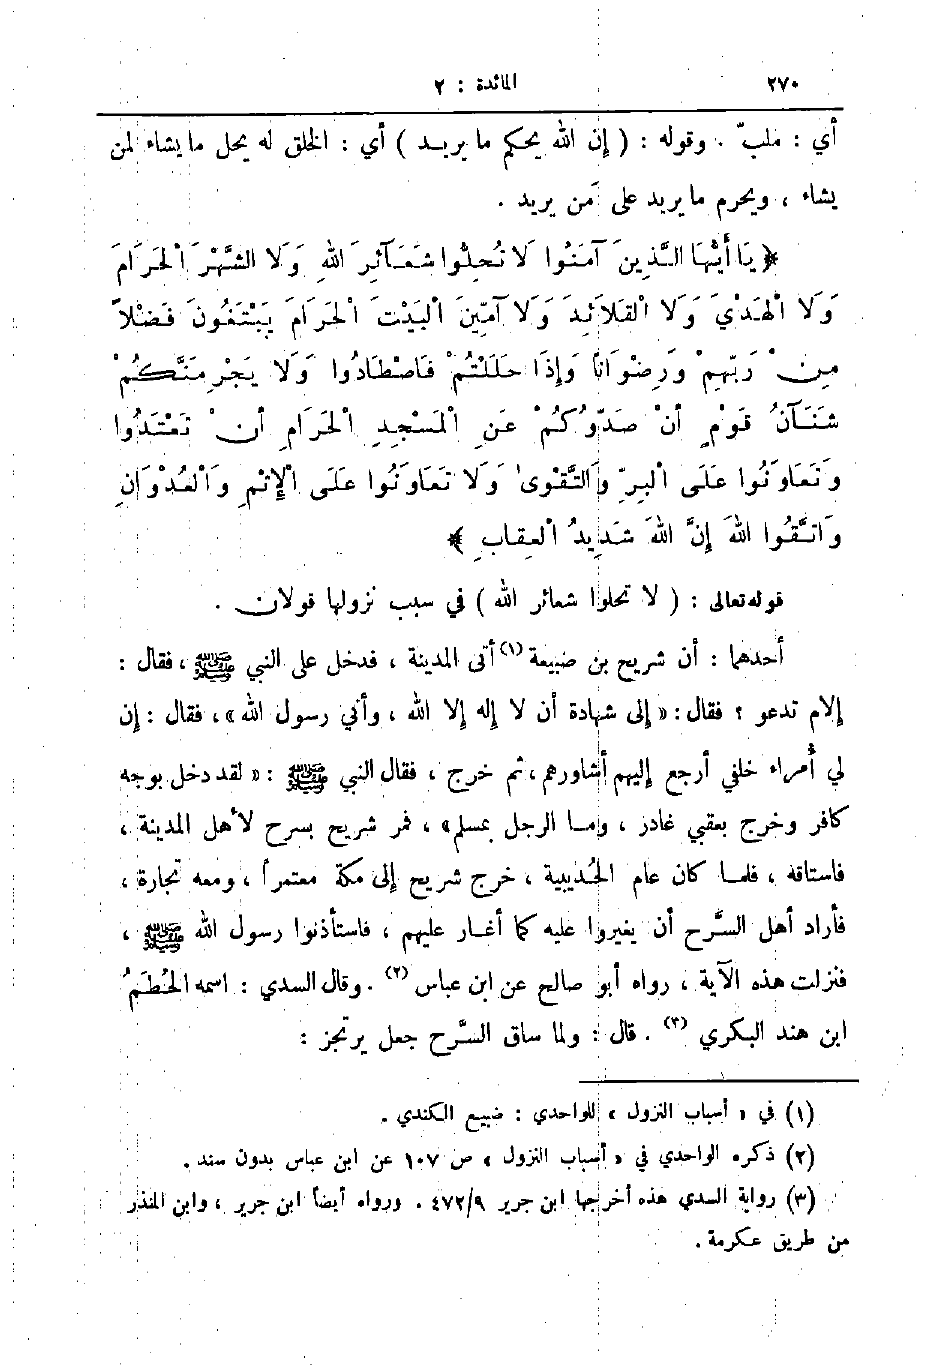 ٢٧٠ المائدة : ٢
أي : ملبّ . وقوله : ( إن الله يحكم ما يريد ) أي : الخلق له يحل ما يشاء لمن
يشاء ، ويحرم ما يريد على من يريد .
﴿ يَا أَيُّهَا الَّذِينَ آمَنُوا لَا تُحِلُّوا شَعَآئِرَ اللهِ وَلَا الشَّهْرَ الْحَرَامَ
وَلَا الْهَدْيَ وَلَا الْقَلَائِدَ وَلَا آمِّينَ الْبَيْتَ الْحَرَامَ يَبْتَغُونَ فَضْلاً
مِنْ رَبِّهِمْ وَرِضْوَاناً وَإِذَا حَلَلْتُمْ فَاصْطَادُوا وَلَا يَجْرِمَنَّكُمْ
شَنَآنُ قَوْمٍ أَنْ صَدُّوكُمْ عَنِ الْمَسْجِدِ الْحَرَامِ أَنْ تَعْتَدُوا
وَتَعَاوَنُوا عَلَى الْبِرِّ وَالتَّقْوىٰ وَلَا تَعَاوَنُوا عَلَى الْإِثْمِ وَالْعُدْوَانِ
وَاتَّقُوا اللهَ إِنَّ اللهَ شَدِيدُ الْعِقَابِ ﴾
قوله تعالى : ( لا تحلوا شعائر الله ) في سبب نزولها قولان .
أحدهما : أن شريح بن ضبيعة (١) أتى المدينة ، فدخل على النبي ﷺ ، فقال :
إلام تدعو ؟ فقال : « إلى شهادة أن لا إله إلا الله ، وأني رسول الله » ، فقال : إن
لي أُمراء خلفي أرجع إليهم أشاورهم ، ثم خرج ، فقال النبي ﷺ : « لقد دخل بوجه
كافر وخرج بعقبي غادر ، وما الرجل بمسلم » ، فمر شريح بسرح لأهل المدينة ،
فاستاقه ، فلما كان عام الحُديبية ، خرج شريح إلى مكة معتمراً ، ومعه تجارة ،
فأراد أهل السَّرح أن يغيروا عليه كما أغار عليهم ، فاستأذنوا رسول الله ﷺ ،
فنزلت هذه الآية ، رواه أبو صالح عن ابن عباس (٢) . وقال السدي : اسمه الحُطَمُ
ابن هند البكري (٣) . قال : ولما ساق السَّرح جعل يرتجز :
(١) في « أسباب النزول » للواحدي : ضبيع الكندي .
(٢) ذكره الواحدي في « أسباب النزول » ص ١٠٧ عن ابن عباس بدون سند .
(٣) رواية السدي هذه أخرجها ابن جرير ٤٧٢/٩ . ورواه أيضاً ابن جرير ، وابن المنذر
من طريق عكرمة .